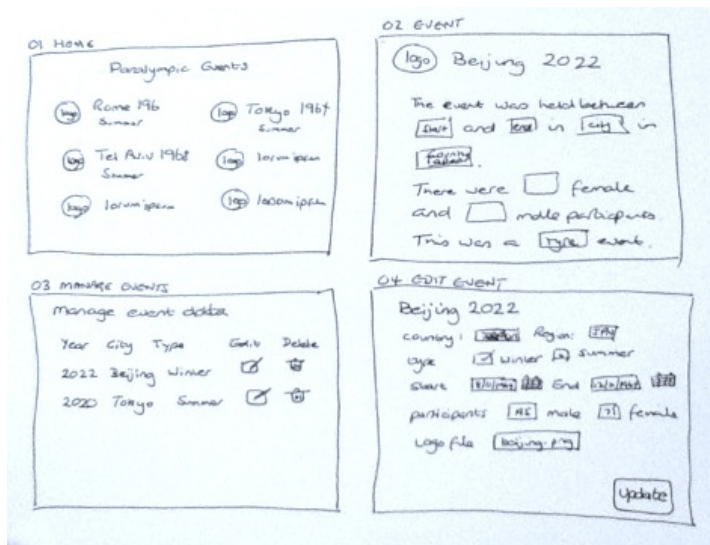 01 HOME
Paralympic Events
logo Rome 196 logo Tokyo 1964
Summer Summer
logo Tel Aviv 1968 logo lorum ipsem
Summer
logo lorum ipsem logo lorom ipsem
02 EVENT
logo Beijing 2022
The event was held between
start and end in city in
There were female
and male participants.
This was a type event.
03 MANAGE EVENTS
Manage event data
Year City Type Edit Delete
2022 Beijing Winter
2020 Tokyo Summer
04 EDIT EVENT
Beijing 2022
country: Region:
type winter summer
Start End
participants male female
Logo file beijing.png
Update